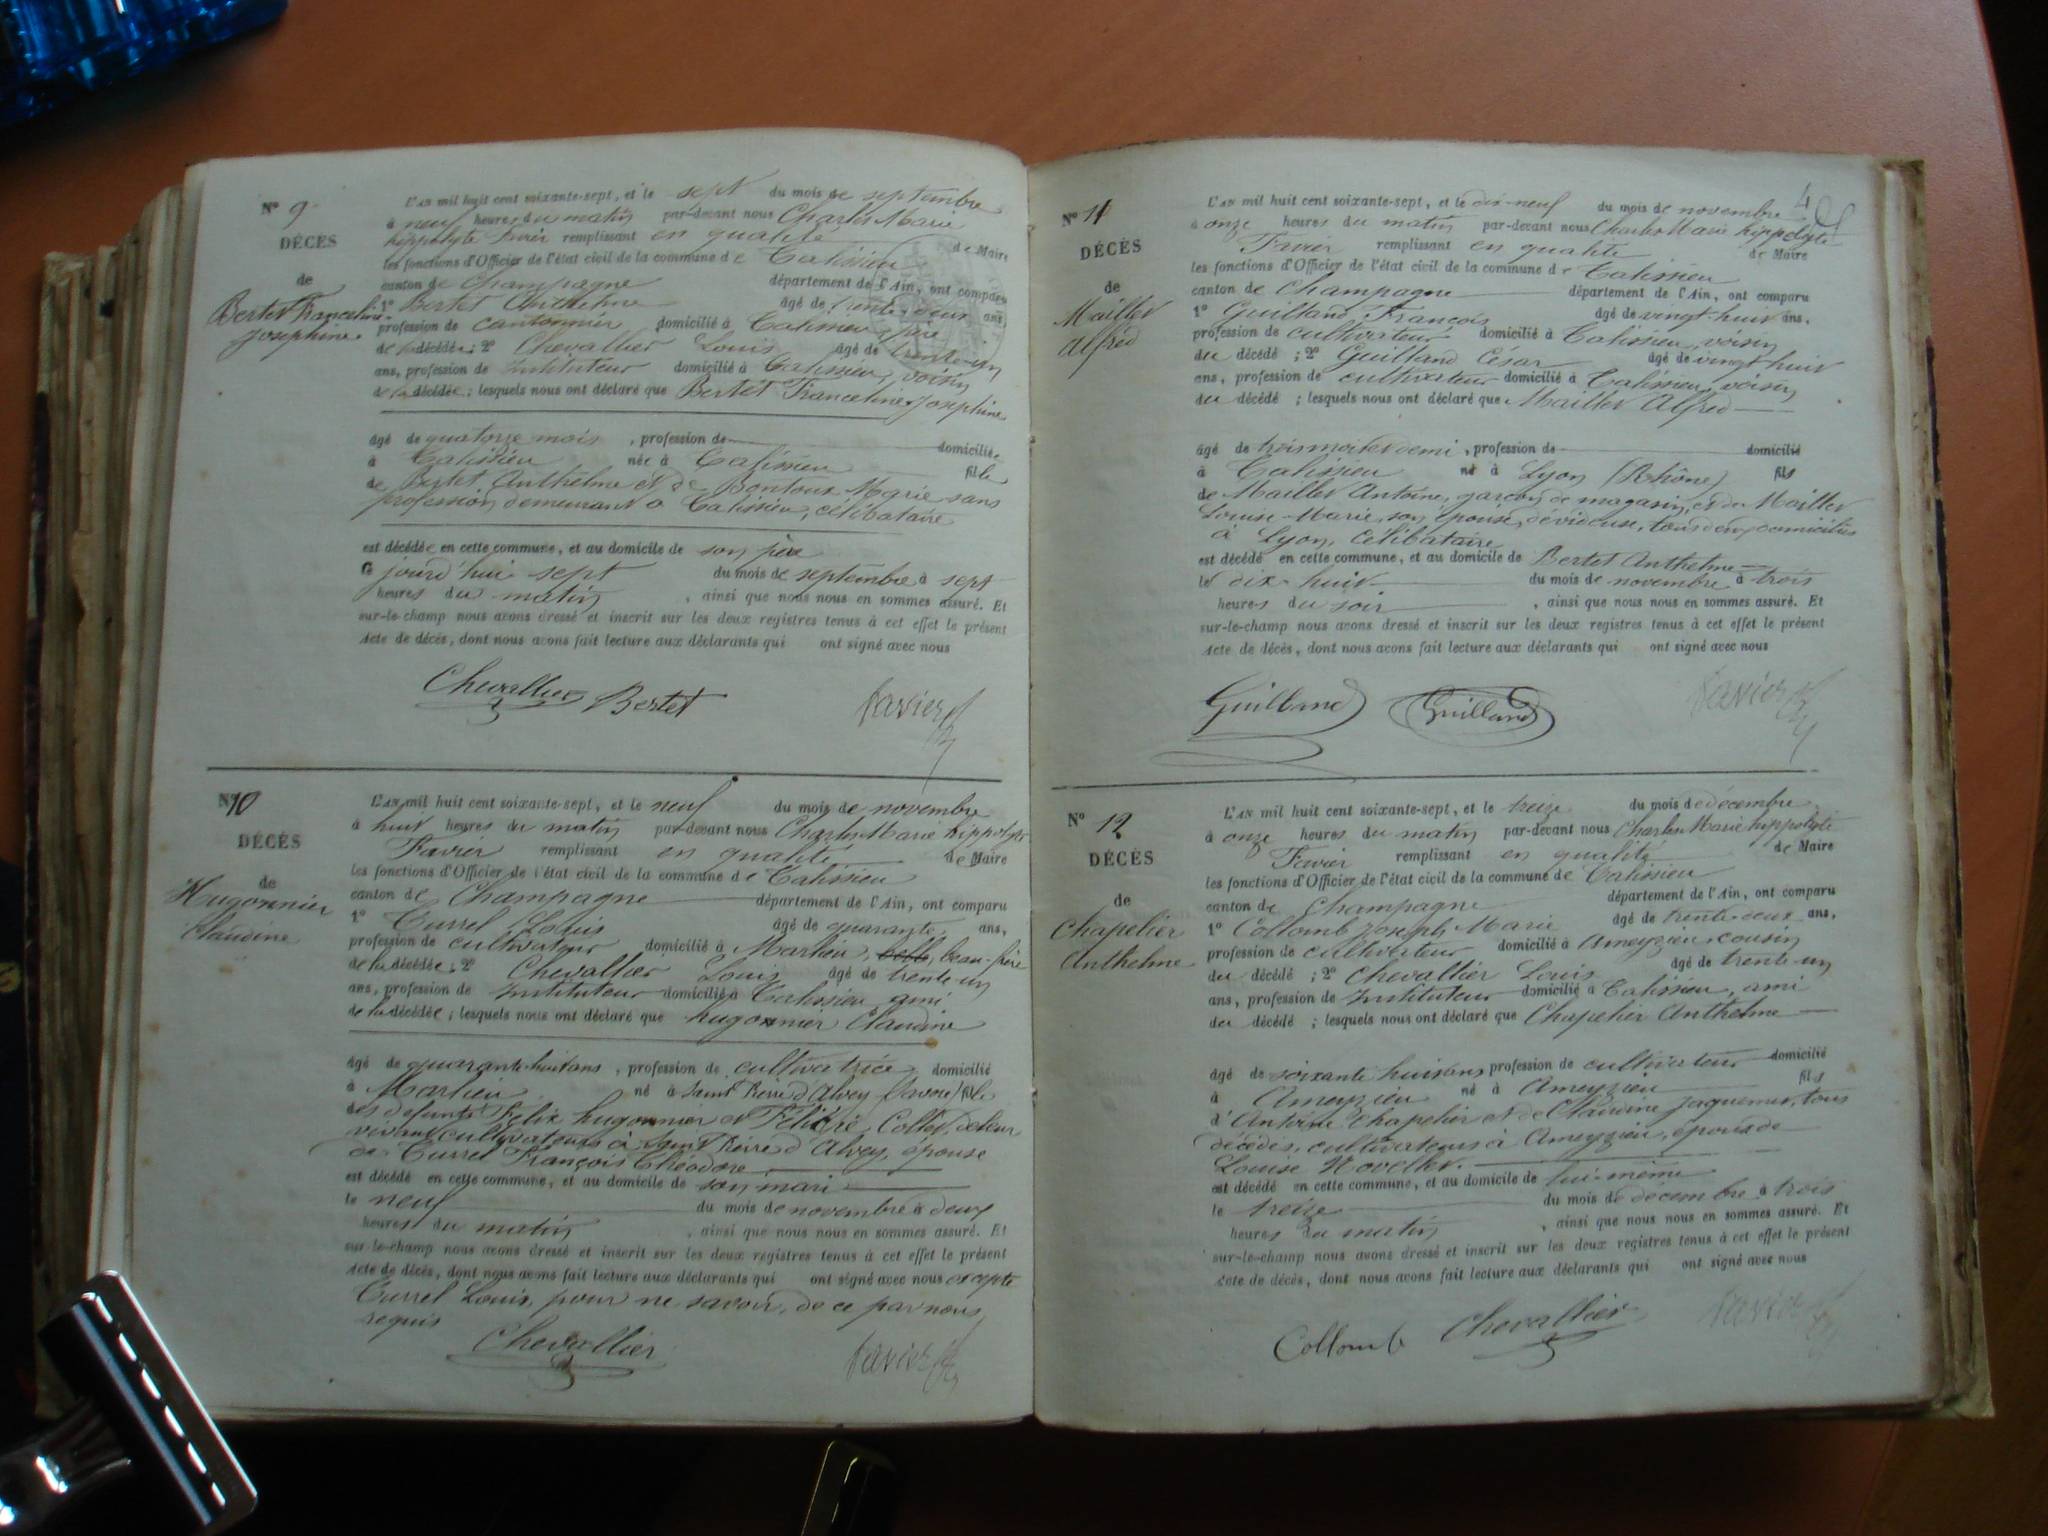 N° 9
DÉCÈS
de
Bertet Franceline
Joséphine
L'an mil huit cent soixante-sept, et le sept du mois de septembre
à neuf heures du matin par-devant nous Charles Marie
hippolyte Favier remplissant en qualité de Maire
les fonctions d'Officier de l'état civil de la commune de Talissieu
canton de Champagne département de l'Ain, ont comparu
1° Bertet Anthelme âgé de trente-deux ans,
profession de cantonnier domicilié à Talissieu, père
de la décédée; 2° Chevallier Louis âgé de trente-un
ans, profession de instituteur domicilié à Talissieu, voisin
de la décédée; lesquels nous ont déclaré que Bertet Franceline Joséphine
âgé de quatorze mois, profession de domiciliée
à Talissieu née à Talissieu fille
de Bertet Anthelme et de Bontoux Marie sans
profession demeurant à Talissieu, célibataire
est décédée en cette commune, et au domicile de son père
ce jourd'hui sept du mois de septembre à sept
heures du matin, ainsi que nous nous en sommes assuré. Et
sur-le-champ nous avons dressé et inscrit sur les deux registres tenus à cet effet le présent
Acte de décès, dont nous avons fait lecture aux déclarants qui ont signé avec nous
Chevallier Bertet Favier
N° 10
DÉCÈS
de
Hugonnier
Claudine
L'an mil huit cent soixante-sept, et le neuf du mois de novembre
à huit heures du matin par-devant nous Charles Marie hippolyte
Favier remplissant en qualité de Maire
les fonctions d'Officier de l'état civil de la commune de Talissieu
canton de Champagne département de l'Ain, ont comparu
1° Turrel Louis âgé de quarante ans,
profession de cultivateur domicilié à Marlieu, beau-frère
de la décédée; 2° Chevallier Louis âgé de trente-un
ans, profession de Instituteur domicilié à Talissieu ami
de la décédée; lesquels nous ont déclaré que hugonnier Claudine
âgé de quarante-huit ans, profession de cultivatrice domicilié
à Marlieu né à Saint Pierre d'Alvey (Savoie) fille
des defunts Félix hugonnier et Collet, de leur
vivant cultivateurs à Saint Pierre d'Alvey, épouse
de Turrel François Théodore
est décédé en cette commune, et au domicile de son mari
le neuf du mois de novembre à deux
heures du matin, ainsi que nous nous en sommes assuré. Et
sur-le-champ nous avons dressé et inscrit sur les deux registres tenus à cet effet le présent
Acte de décès, dont nous avons fait lecture aux déclarants qui ont signé avec nous excepté
Turrel Louis, pour ne savoir, de ce par nous
requis
Chevallier Favier
N° 11
DÉCÈS
de
Maillet
Alfred
L'an mil huit cent soixante-sept, et le dix-neuf du mois de novembre
à onze heures du matin par-devant nous Charles Marie hippolyte
Favier remplissant en qualité de Maire
les fonctions d'Officier de l'état civil de la commune de Talissieu
canton de Champagne département de l'Ain, ont comparu
1° Guilland François âgé de vingt-huit ans,
profession de cultivateur domicilié à Talissieu, voisin
du décédé; 2° Guilland César âgé de vingt-huit
ans, profession de cultivateur domicilié à Talissieu, voisin
du décédé; lesquels nous ont déclaré que Maillet Alfred
âgé de trois mois et demi, profession de domicilié
à Talissieu né à Lyon (Rhône) fils
de Maillet Antoine, garçon de magasin, et de Maillet
Louise Marie, son épouse, dévideuse, tous deux domiciliés
à Lyon, célibataire
est décédé en cette commune, et au domicile de Bertet Anthelme
le dix-huit du mois de novembre à trois
heures du soir, ainsi que nous nous en sommes assuré. Et
sur-le-champ nous avons dressé et inscrit sur les deux registres tenus à cet effet le présent
Acte de décès, dont nous avons fait lecture aux déclarants qui ont signé avec nous
Guilland Guilland Favier
N° 12
DÉCÈS
de
Chapelier
Anthelme
L'an mil huit cent soixante-sept, et le treize du mois de décembre
à onze heures du matin par-devant nous Charles Marie hippolyte
Favier remplissant en qualité de Maire
les fonctions d'Officier de l'état civil de la commune de Talissieu
canton de Champagne département de l'Ain, ont comparu
1° Collomb Joseph Marie âgé de trente-deux ans,
profession de cultivateur domicilié à Ameyzieu, cousin
du décédé; 2° Chevallier Louis âgé de trente-un
ans, profession de Instituteur domicilié à Talissieu, ami
du décédé; lesquels nous ont déclaré que Chapelier Anthelme
âgé de soixante huit ans profession de cultivateur domicilié
à Ameyzieu né à Ameyzieu fils
d'Antoine Chapelier et de Claudine Jaquemet, tous
décédés, cultivateurs à Ameyzieu, époux de
Louise Novellet.
est décédé en cette commune, et au domicile de lui-même
le treize du mois de décembre à trois
heures du matin, ainsi que nous nous en sommes assuré. Et
sur-le-champ nous avons dressé et inscrit sur les deux registres tenus à cet effet le présent
Acte de décès, dont nous avons fait lecture aux déclarants qui ont signé avec nous
Collomb Chevallier Favier